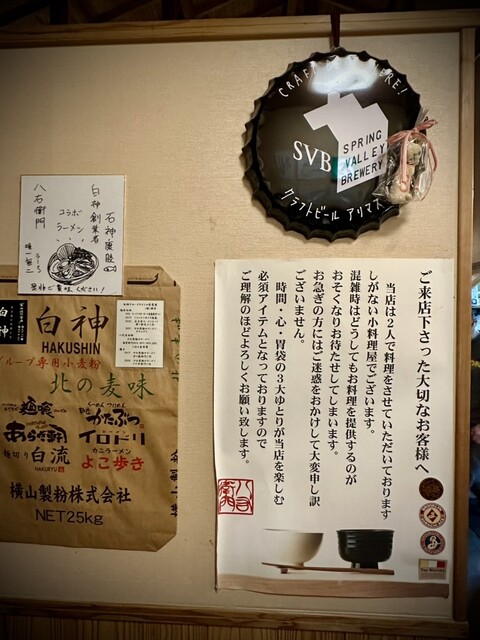 CRAFT
HERE!
SVB
SPRING
VALLEY
BREWERY
クラフトビール アリマス
石神康髄
白神創業者
コラボ
ラーメン
八右衛門
らーらん
唯一無二
是非ご賞味ください!
白神
白神
HAKUSHIN
グループ専用小麦粉
北の麦味
麺喰
がたぶつ
あらた軒
イロドリ
カニラーメン
細切り白流
HAKURYU
よこ歩き
横山製粉株式会社
NET25kg
ご来店下さった大切なお客様へ
当店は2人で料理をさせていただいております
しがない小料理屋でございます。
混雑時はどうしてもお料理を提供するのが
おそくなりお待たせしてしまいます。
お急ぎの方にはご迷惑をおかけして大変申し訳
ございません。
時間・心・胃袋の3大ゆとりが当店を楽しむ
必須アイテムとなっておりますので
ご理解のほどよろしくお願い致します。